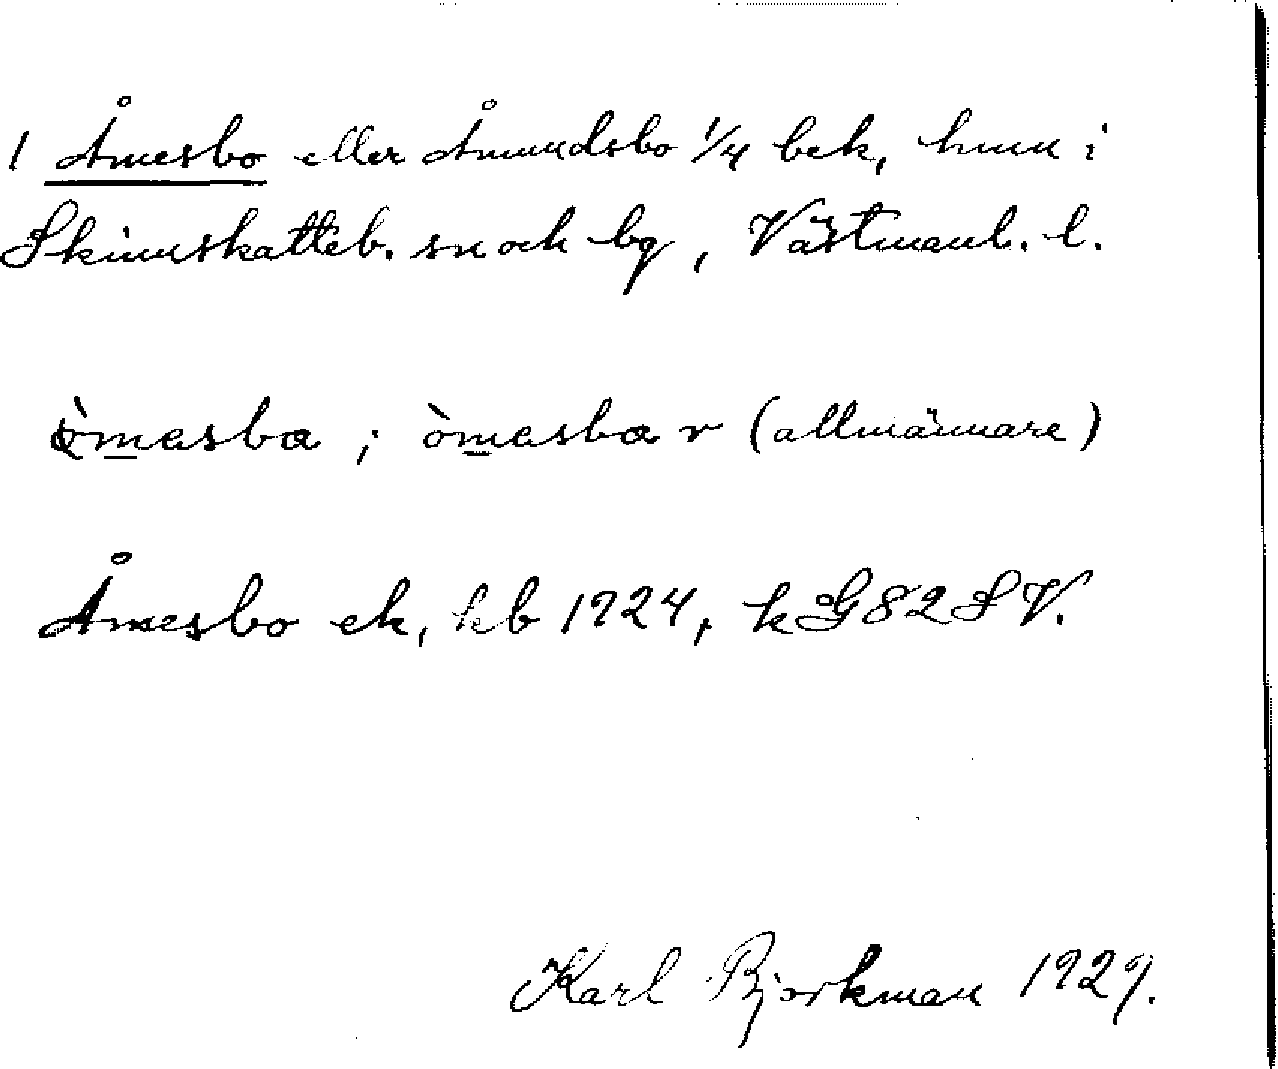 1 Åmesbo eller Åmundsbo 1/4 bek, hmn i
Skinnskatteb. sn och bg, Västmanl. l.
òmasba ; òmasbar (allmännare)
Åmesbo ek, kb 1924, kG82SV.
Karl Björkman 1929.